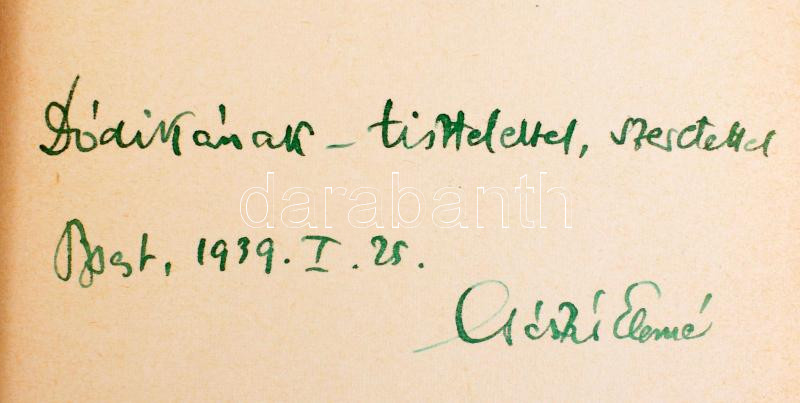 Dódikának – tisztelettel, szeretettel
darabanth
Bpest, 1939. I. 25.
Császár Elemér